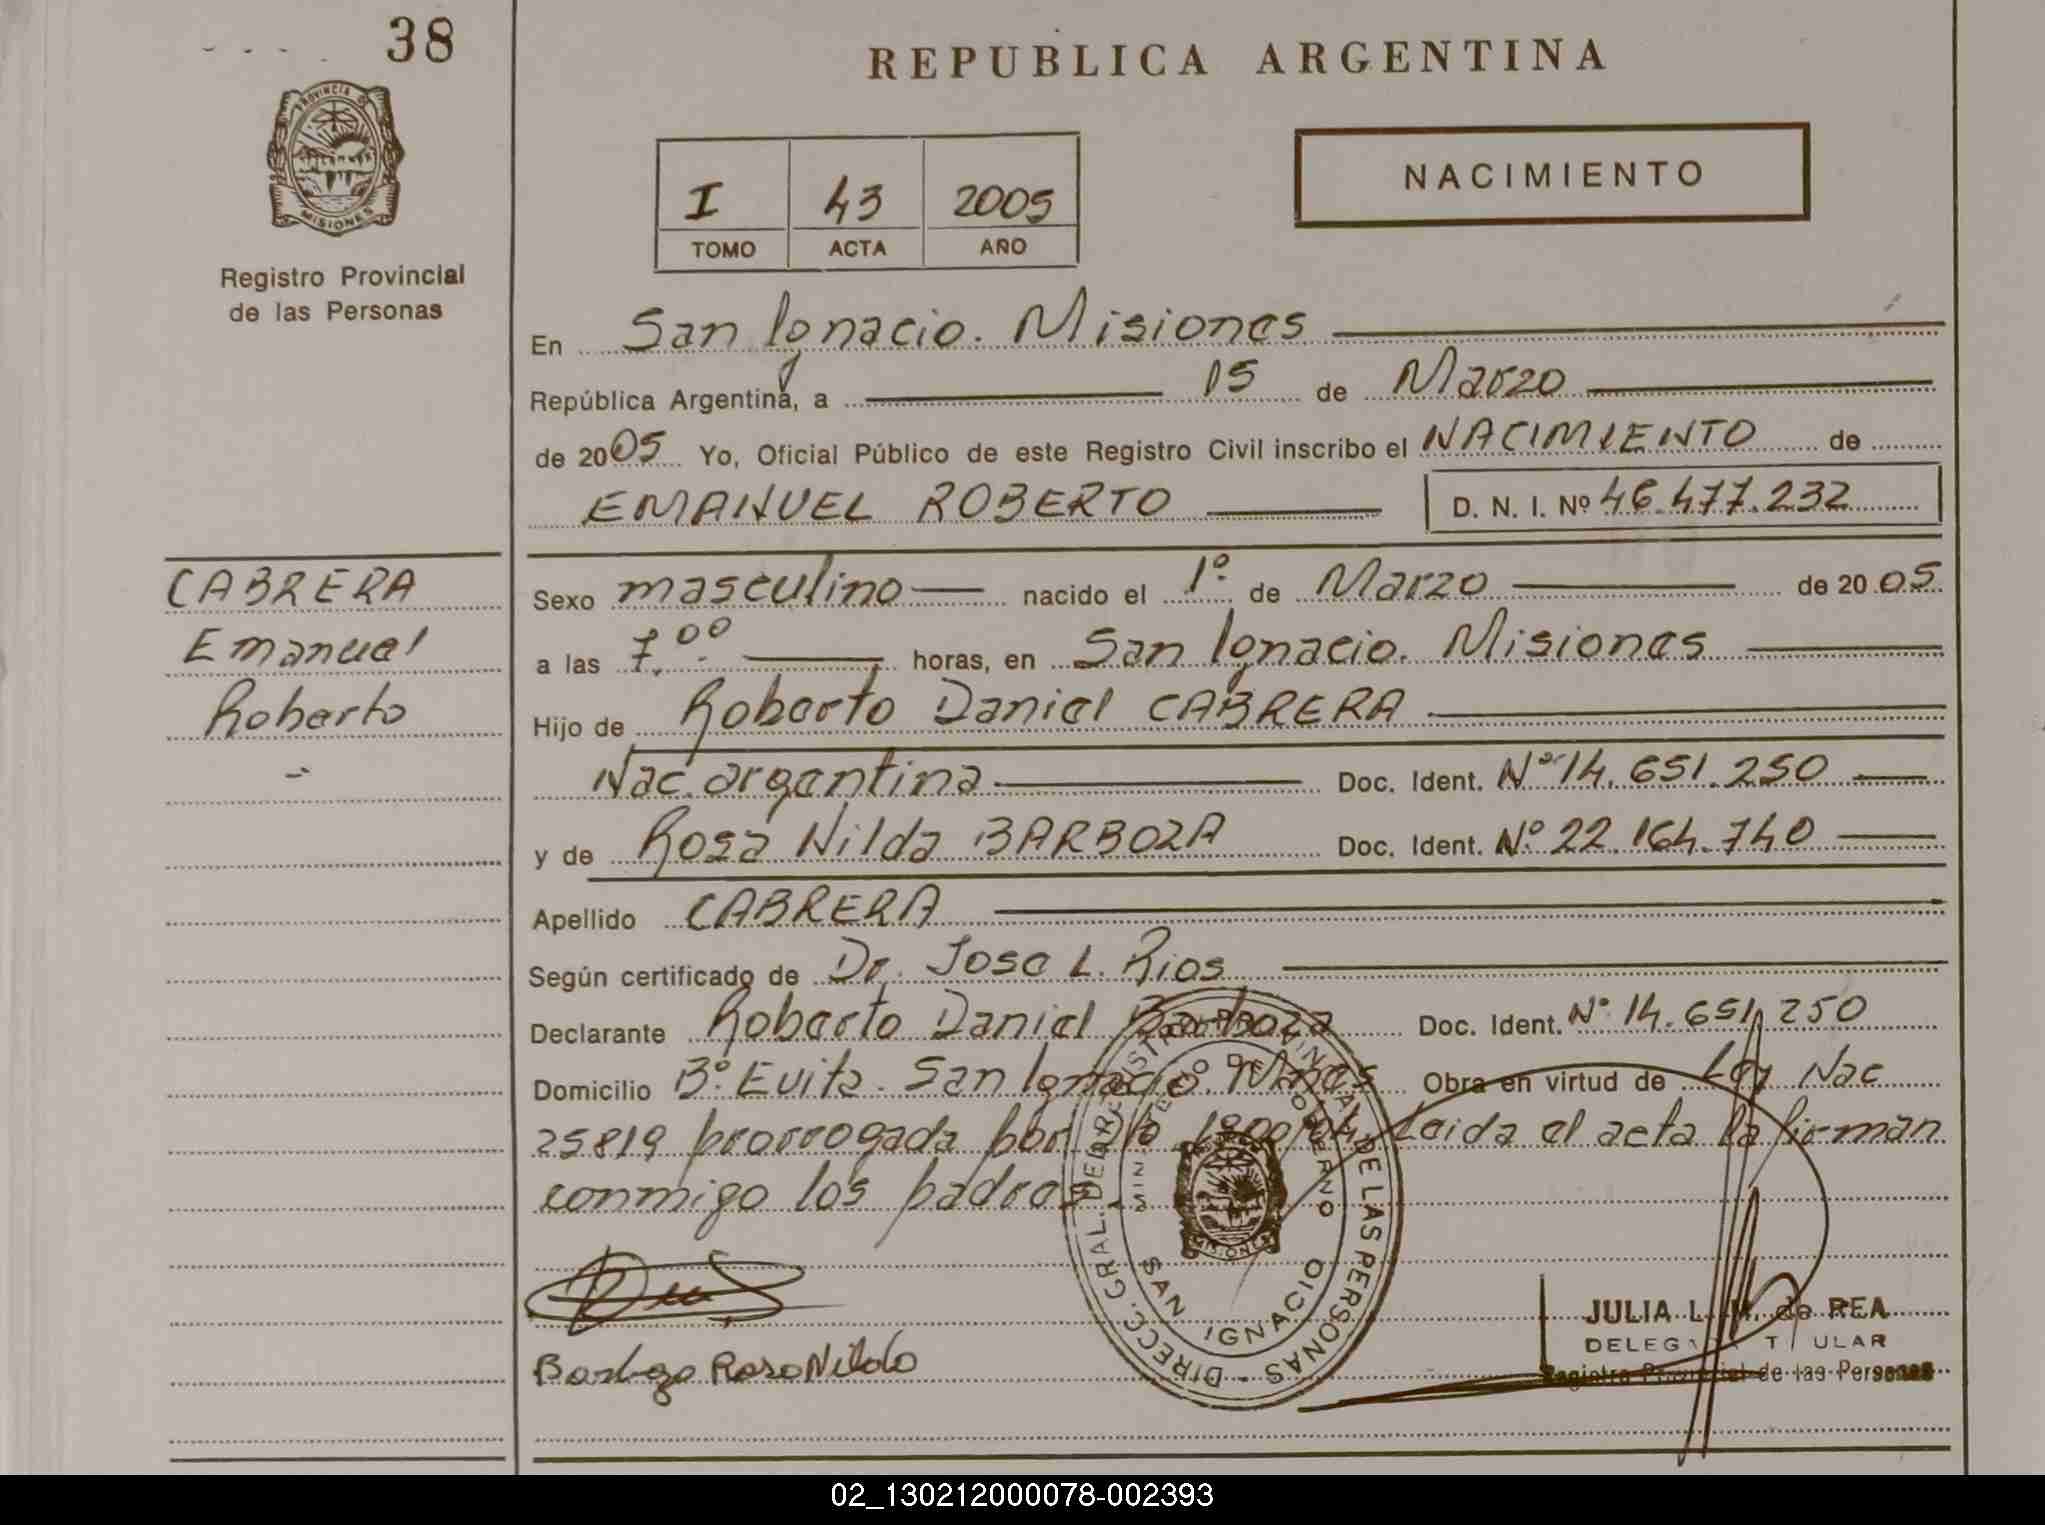 38
REPUBLICA ARGENTINA
PROVINCIA DE
MISIONES
Registro Provincial
de las Personas
I 43 2005
TOMO ACTA AÑO
NACIMIENTO
En San Ignacio. Misiones
República Argentina, a 15 de Marzo
de 2005 Yo, Oficial Público de este Registro Civil inscribo el NACIMIENTO de
EMANUEL ROBERTO D. N. I. Nº 46.477.232
CABRERA
Emanuel
Roberto
Sexo masculino nacido el 1º de Marzo de 2005
a las 7.00 horas, en San Ignacio. Misiones
Hijo de Roberto Daniel CABRERA
Nac. argentina Doc. Ident. Nº 14.651.250
y de Rosa Nilda BARBOZA Doc. Ident. Nº 22.164.740
Apellido CABRERA
Según certificado de Dr. Jose L. Rios
Declarante Roberto Daniel Barboza Doc. Ident. Nº 14.651.250
Domicilio Bº. Evita. San Ignacio. Mnes Obra en virtud de Ley Nac
25819 prorrogada por Leida el acta la firman
conmigo los padres.
DIRECC. GRAL. DEL REGISTRO PROVINCIAL DE LAS PERSONAS
MINISTERIO DE GOBIERNO
MISIONES
SAN IGNACIO
Barboza Rosa Nilda
JULIA L. M. de REA
DELEGADA TITULAR
Registro Provincial de las Personas
02_130212000078-002393